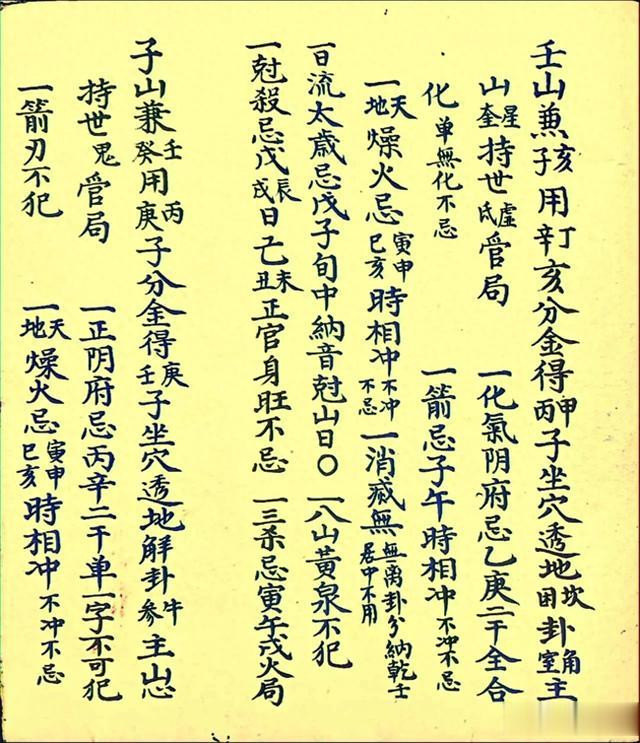 壬山兼亥子用丁辛亥分金得甲丙子坐穴透地坎困卦角室主
山星奎持世虚氐管局 一化氣阴府忌乙庚二干全合
化单無化不忌 一箭忌子午時相冲不冲不忌
一天地燥火忌寅申巳亥時相冲不冲不忌 一消滅無無离卦分納乾壬居中不用
一日流太歲忌戊子旬中納音尅山日〇 一八山黃泉不犯
一尅殺忌戊辰戌日己未丑正官身旺不忌 一三杀忌寅午戌火局
子山兼壬癸用丙庚子分金得庚壬子坐穴透地解卦牛参主山
持世鬼管局 一正阴府忌丙辛二干单一字不可犯
一箭刃不犯 一天地燥火忌寅申巳亥時相冲不冲不忌